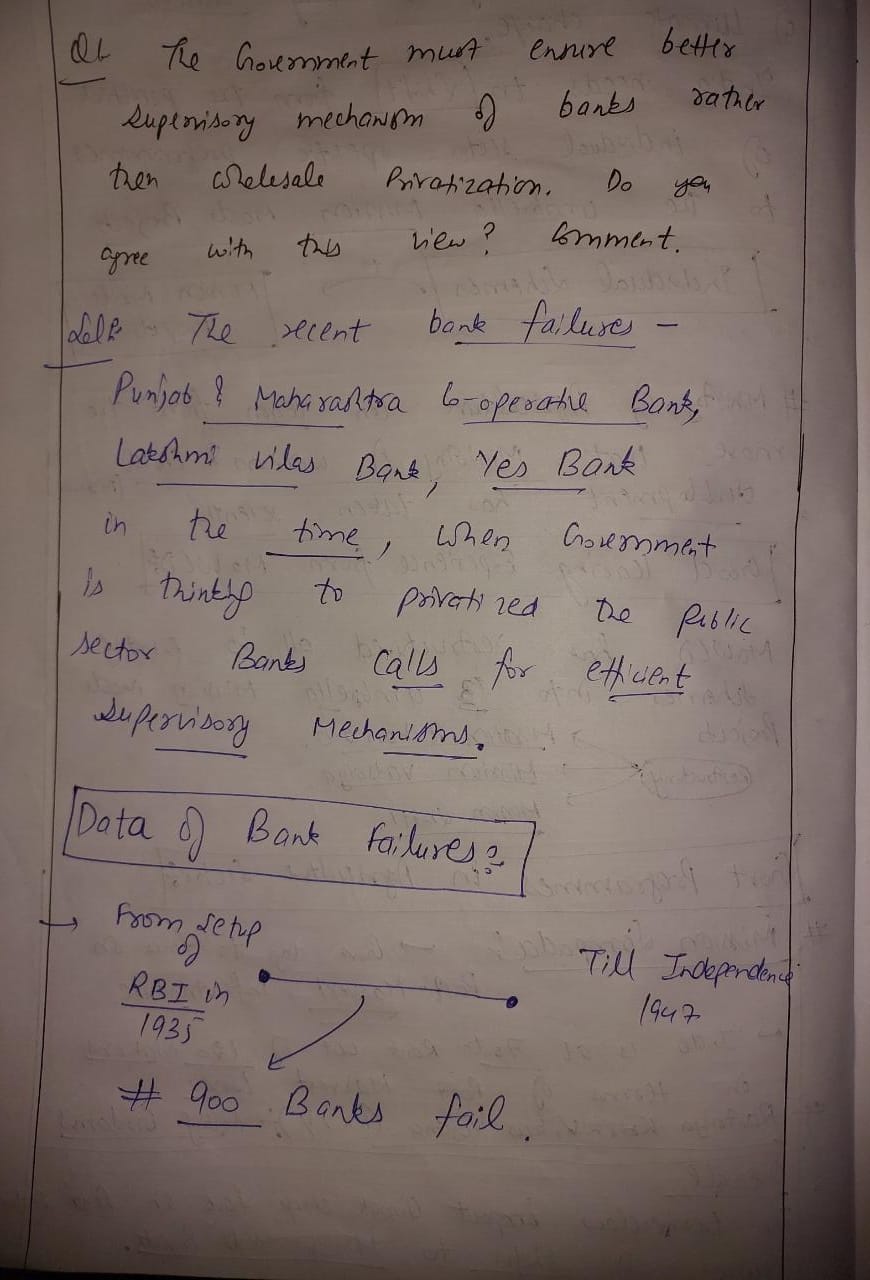 Q1 The Government must ensure better
supervisory mechanism of banks rather
then wholesale Privatization. Do you
agree with this view? Comment.
Sol: The recent bank failures -
Punjab & Maharashtra Co-operative Bank,
Lakshmi vilas Bank, Yes Bank
in the time, when Government
is thinking to privatized the Public
sector Banks calls for efficient
supervisory Mechanisms.
Data of Bank Failures:
→ From setup
of
RBI in
1935
Till Independence
1947
# 900 Banks fail.